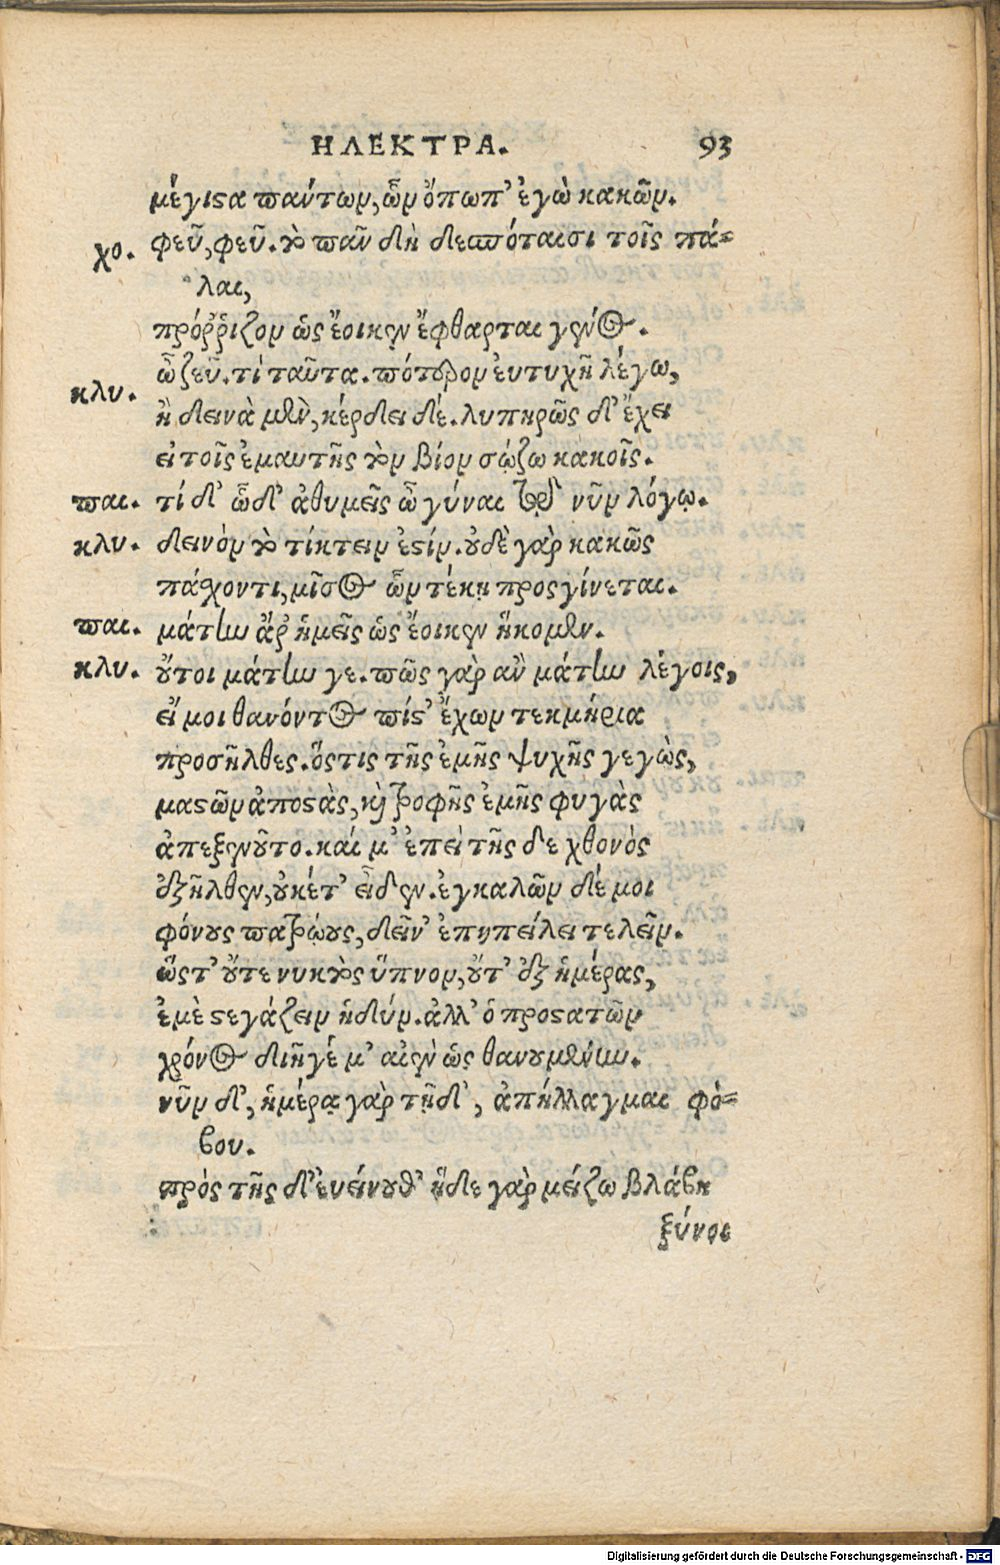 ΗΛΕΚΤΡΑ. 93
μέγιϛα πάντων, ὧν ὄπωπ’ ἐγὼ κακῶν.
χο. φεῦ, φεῦ. τὸ πᾶν δὴ δεσπόταισι τοῖς πά-
λαι,
πρόῤῥιζον ὡς ἔοικεν ἔφθαρται γένος.
κλυ. ὦ ζεῦ. τί ταῦτα. πότερον ἐυτυχῆ λέγω,
ἢ δεινὰ μὲν, κέρδει δέ. λυπηρῶς δ’ ἔχει
εἰ τοῖς ἐμαυτῆς τὸν βίον σῴζω κακοῖς.
παι. τί δ’ ὧδ’ ἀθυμεῖς ὦ γύναι τῷδε νῦν λόγῳ.
κλυ. δεινὸν τὸ τίκτειν ἐϛίν. οὐδὲ γὰρ κακῶς
πάσχοντι, μῖσος ὧν τέκῃ προσγίνεται.
παι. μάτην ἄρ’ ἡμεῖς ὡς ἔοικεν ἥκομεν.
κλυ. οὔτοι μάτην γε. πῶς γὰρ ἂν μάτην λέγοις,
εἴ μοι θανόντος πίϛ’ ἔχων τεκμήρια
προσῆλθες. ὅστις τῆς ἐμῆς ψυχῆς γεγὼς,
μαϛῶν ἀποϛὰς, καὶ τροφῆς ἐμῆς φυγὰς
ἀπεξενοῦτο. καί μ’ ἐπεὶ τῆς δε χθονὸς
ἐξῆλθεν, οὐκέτ’ εἶδεν. ἐγκαλῶν δέ μοι
φόνους πατρῴους, δεῖν’ ἐπηπείλει τελεῖν.
ὥστ’ οὔτε νυκτὸς ὕπνον, οὔτ’ ἐξ ἡμέρας,
ἐμὲ ϛεγάζειν ἡδύν. ἀλλ’ ὁ προϛατῶν
χρόνος διῆγέ μ’ αἰὲν ὡς θανουμένην.
νῦν δ’, ἡμέρᾳ γὰρ τῇδ’, ἀπήλλαγμαι φό-
βου.
πρὸς τῆς δ’ ἐκείνουθ’ ἥδε γὰρ μείζω βλάβη
ξύνοι
Digitalisierung gefördert durch die Deutsche Forschungsgemeinschaft - DFG